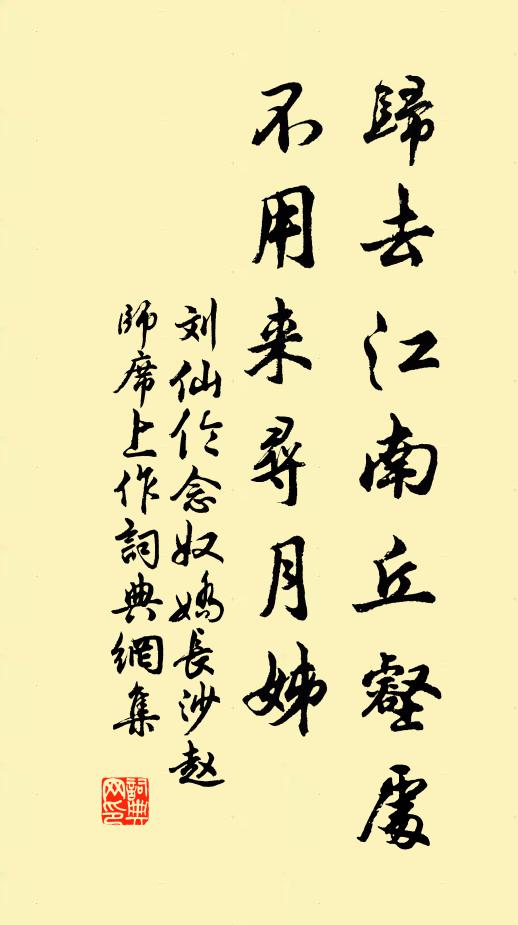 歸去江南丘壑處
不用来尋月姊
刘仙伦念奴嬌長沙赵
師席上作詞典網集
詞典网印